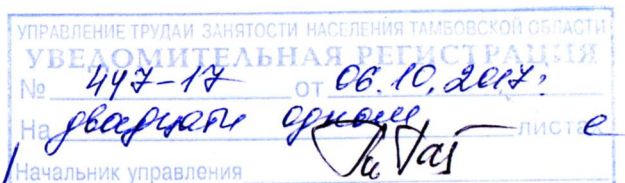 УПРАВЛЕНИЕ ТРУДА И ЗАНЯТОСТИ НАСЕЛЕНИЯ ТАМБОВСКОЙ ОБЛАСТИ
УВЕДОМИТЕЛЬНАЯ РЕГИСТРАЦИЯ
№ 447-17 от 06.10.2017г.
На двадцати одном листах
Начальник управления